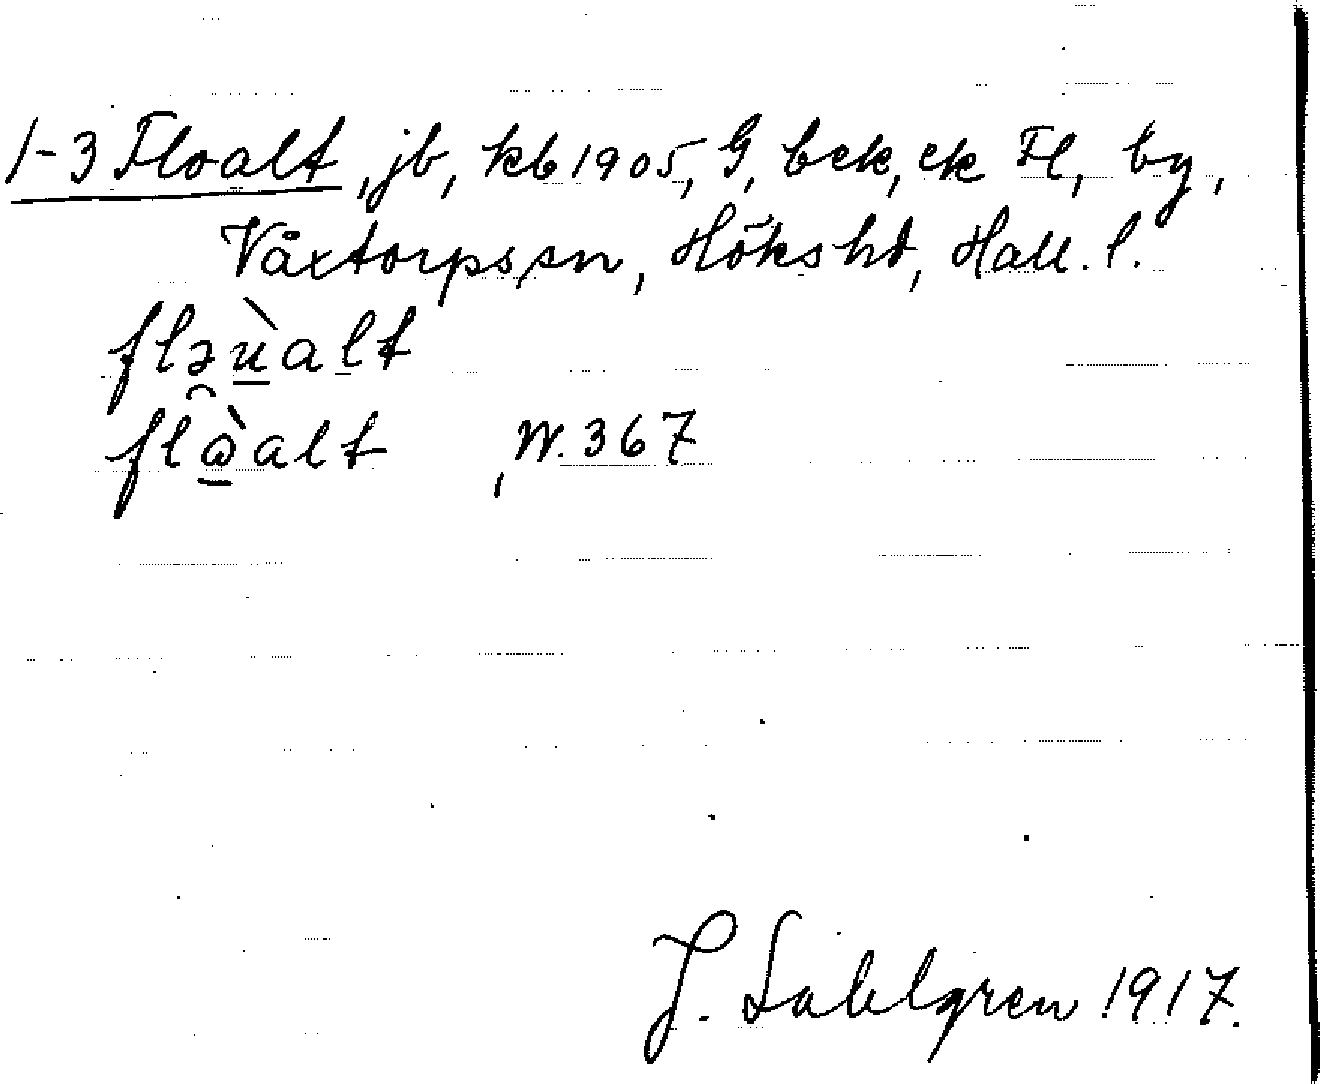 1-3 Floalt, jb, kb 1905, G, bek, ek Fl, by,
Våxtorps sn, Höks hd, Hall. l.
fləù̠al̠t
flὰalt , W. 367
J. Sahlgren 1917.